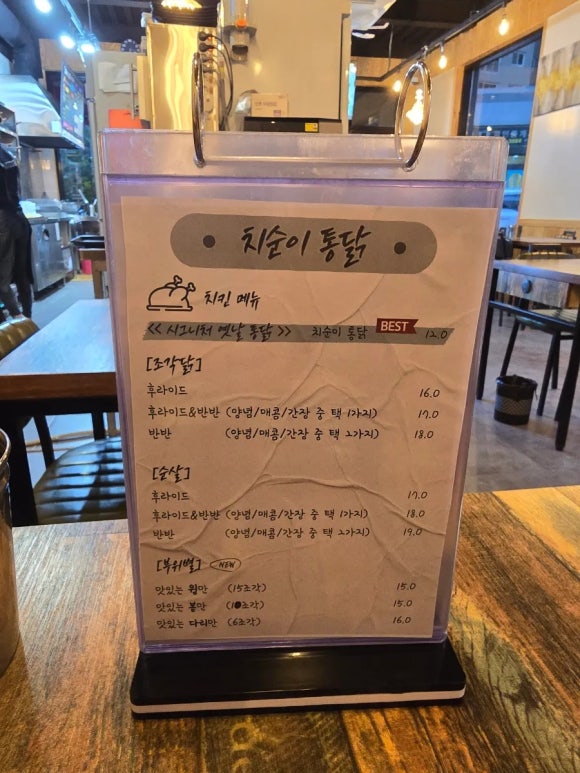 치순이 통닭
치킨 메뉴
<< 시그니처 옛날 통닭 >> 치순이 통닭 BEST 12.0
[조각닭]
후라이드 16.0
후라이드&반반 (양념/매콤/간장 중 택 1가지) 17.0
반반 (양념/매콤/간장 중 택 2가지) 18.0
[순살]
후라이드 17.0
후라이드&반반 (양념/매콤/간장 중 택 1가지) 18.0
반반 (양념/매콤/간장 중 택 2가지) 19.0
[부위별] NEW
맛있는 윙만 (15조각) 15.0
맛있는 봉만 (10조각) 15.0
맛있는 다리만 (6조각) 16.0